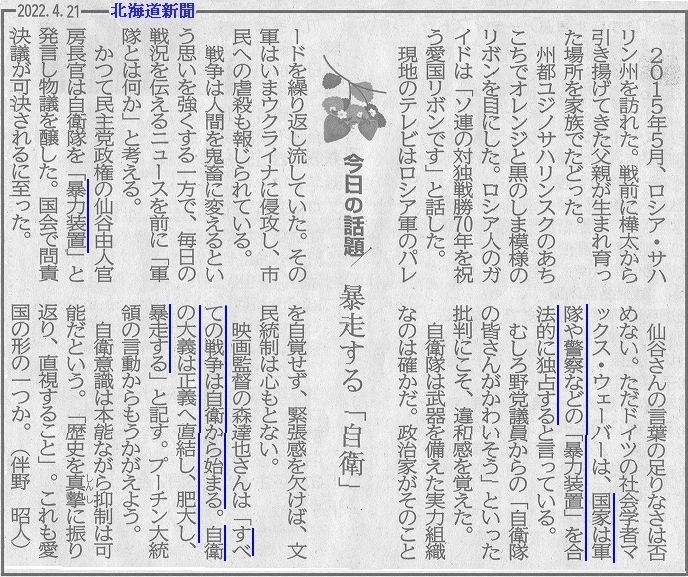 2022.4.21 北海道新聞
今日の話題
暴走する「自衛」
２０１５年５月、ロシア・サハ
リン州を訪れた。戦前に樺太から
引き揚げてきた父親が生まれ育っ
た場所を家族でたどった。
州都ユジノサハリンスクのあち
こちでオレンジと黒のしま模様の
リボンを目にした。ロシア人のガ
イドは「ソ連の対独戦勝70年を祝
う愛国リボンです」と話した。
現地のテレビはロシア軍のパレ
ードを繰り返し流していた。その
軍はいまウクライナに侵攻し、市
民への虐殺も報じられている。
戦争は人間を鬼畜に変えるとい
う思いを強くする一方で、毎日の
戦況を伝えるニュースを前に「軍
隊とは何か」と考える。
かつて民主党政権の仙谷由人官
房長官は自衛隊を「暴力装置」と
発言し物議を醸した。国会で問責
決議が可決されるに至った。
仙谷さんの言葉の足りなさは否
めない。ただドイツの社会学者マ
ックス・ウェーバーは、国家は軍
隊や警察などの「暴力装置」を合
法的に独占すると言っている。
むしろ野党議員からの「自衛隊
の皆さんがかわいそう」といった
批判にこそ、違和感を覚えた。
自衛隊は武器を備えた実力組織
なのは確かだ。政治家がそのこと
を自覚せず、緊張感を欠けば、文
民統制は心もとない。
映画監督の森達也さんは「すべ
ての戦争は自衛から始まる。自衛
の大義は正義へ直結し、肥大し、
暴走する」と記す。プーチン大統
領の言動からもうかがえよう。
自衛意識は本能ながら抑制は可
能だという。「歴史を真摯しんしに振り
返り、直視すること」。これも愛
国の形の一つか。（伴野　昭人）